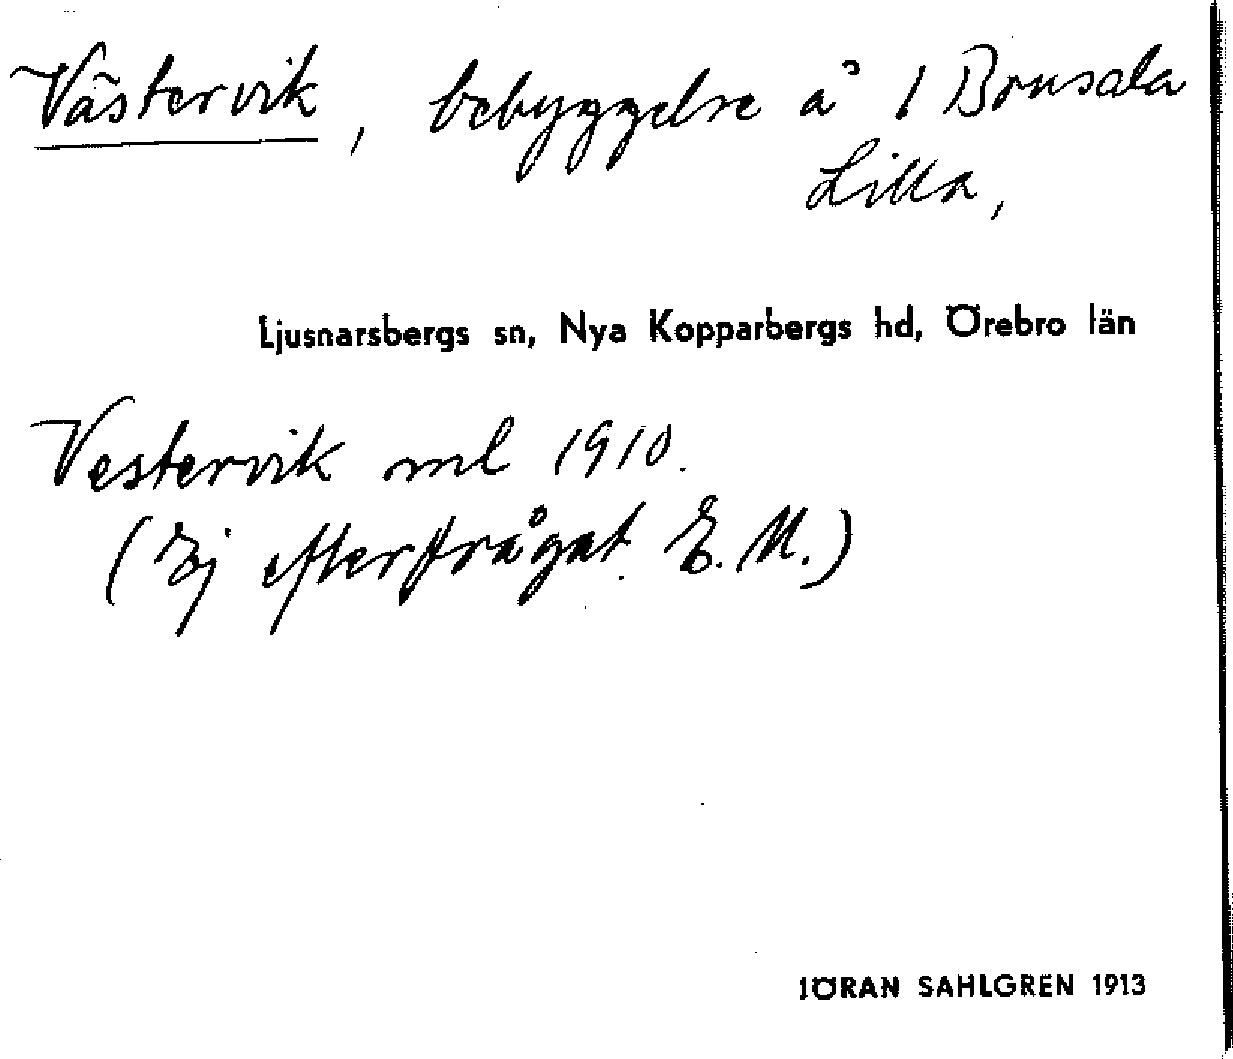 Västervik, bebyggelse å 1 Brusala
Lilla,
Ljusnarsbergs sn, Nya Kopparbergs hd, Örebro län
Vestervik ml 1910.
(Ej efterfrågat. E. M.)
JÖRAN SAHLGREN 1913